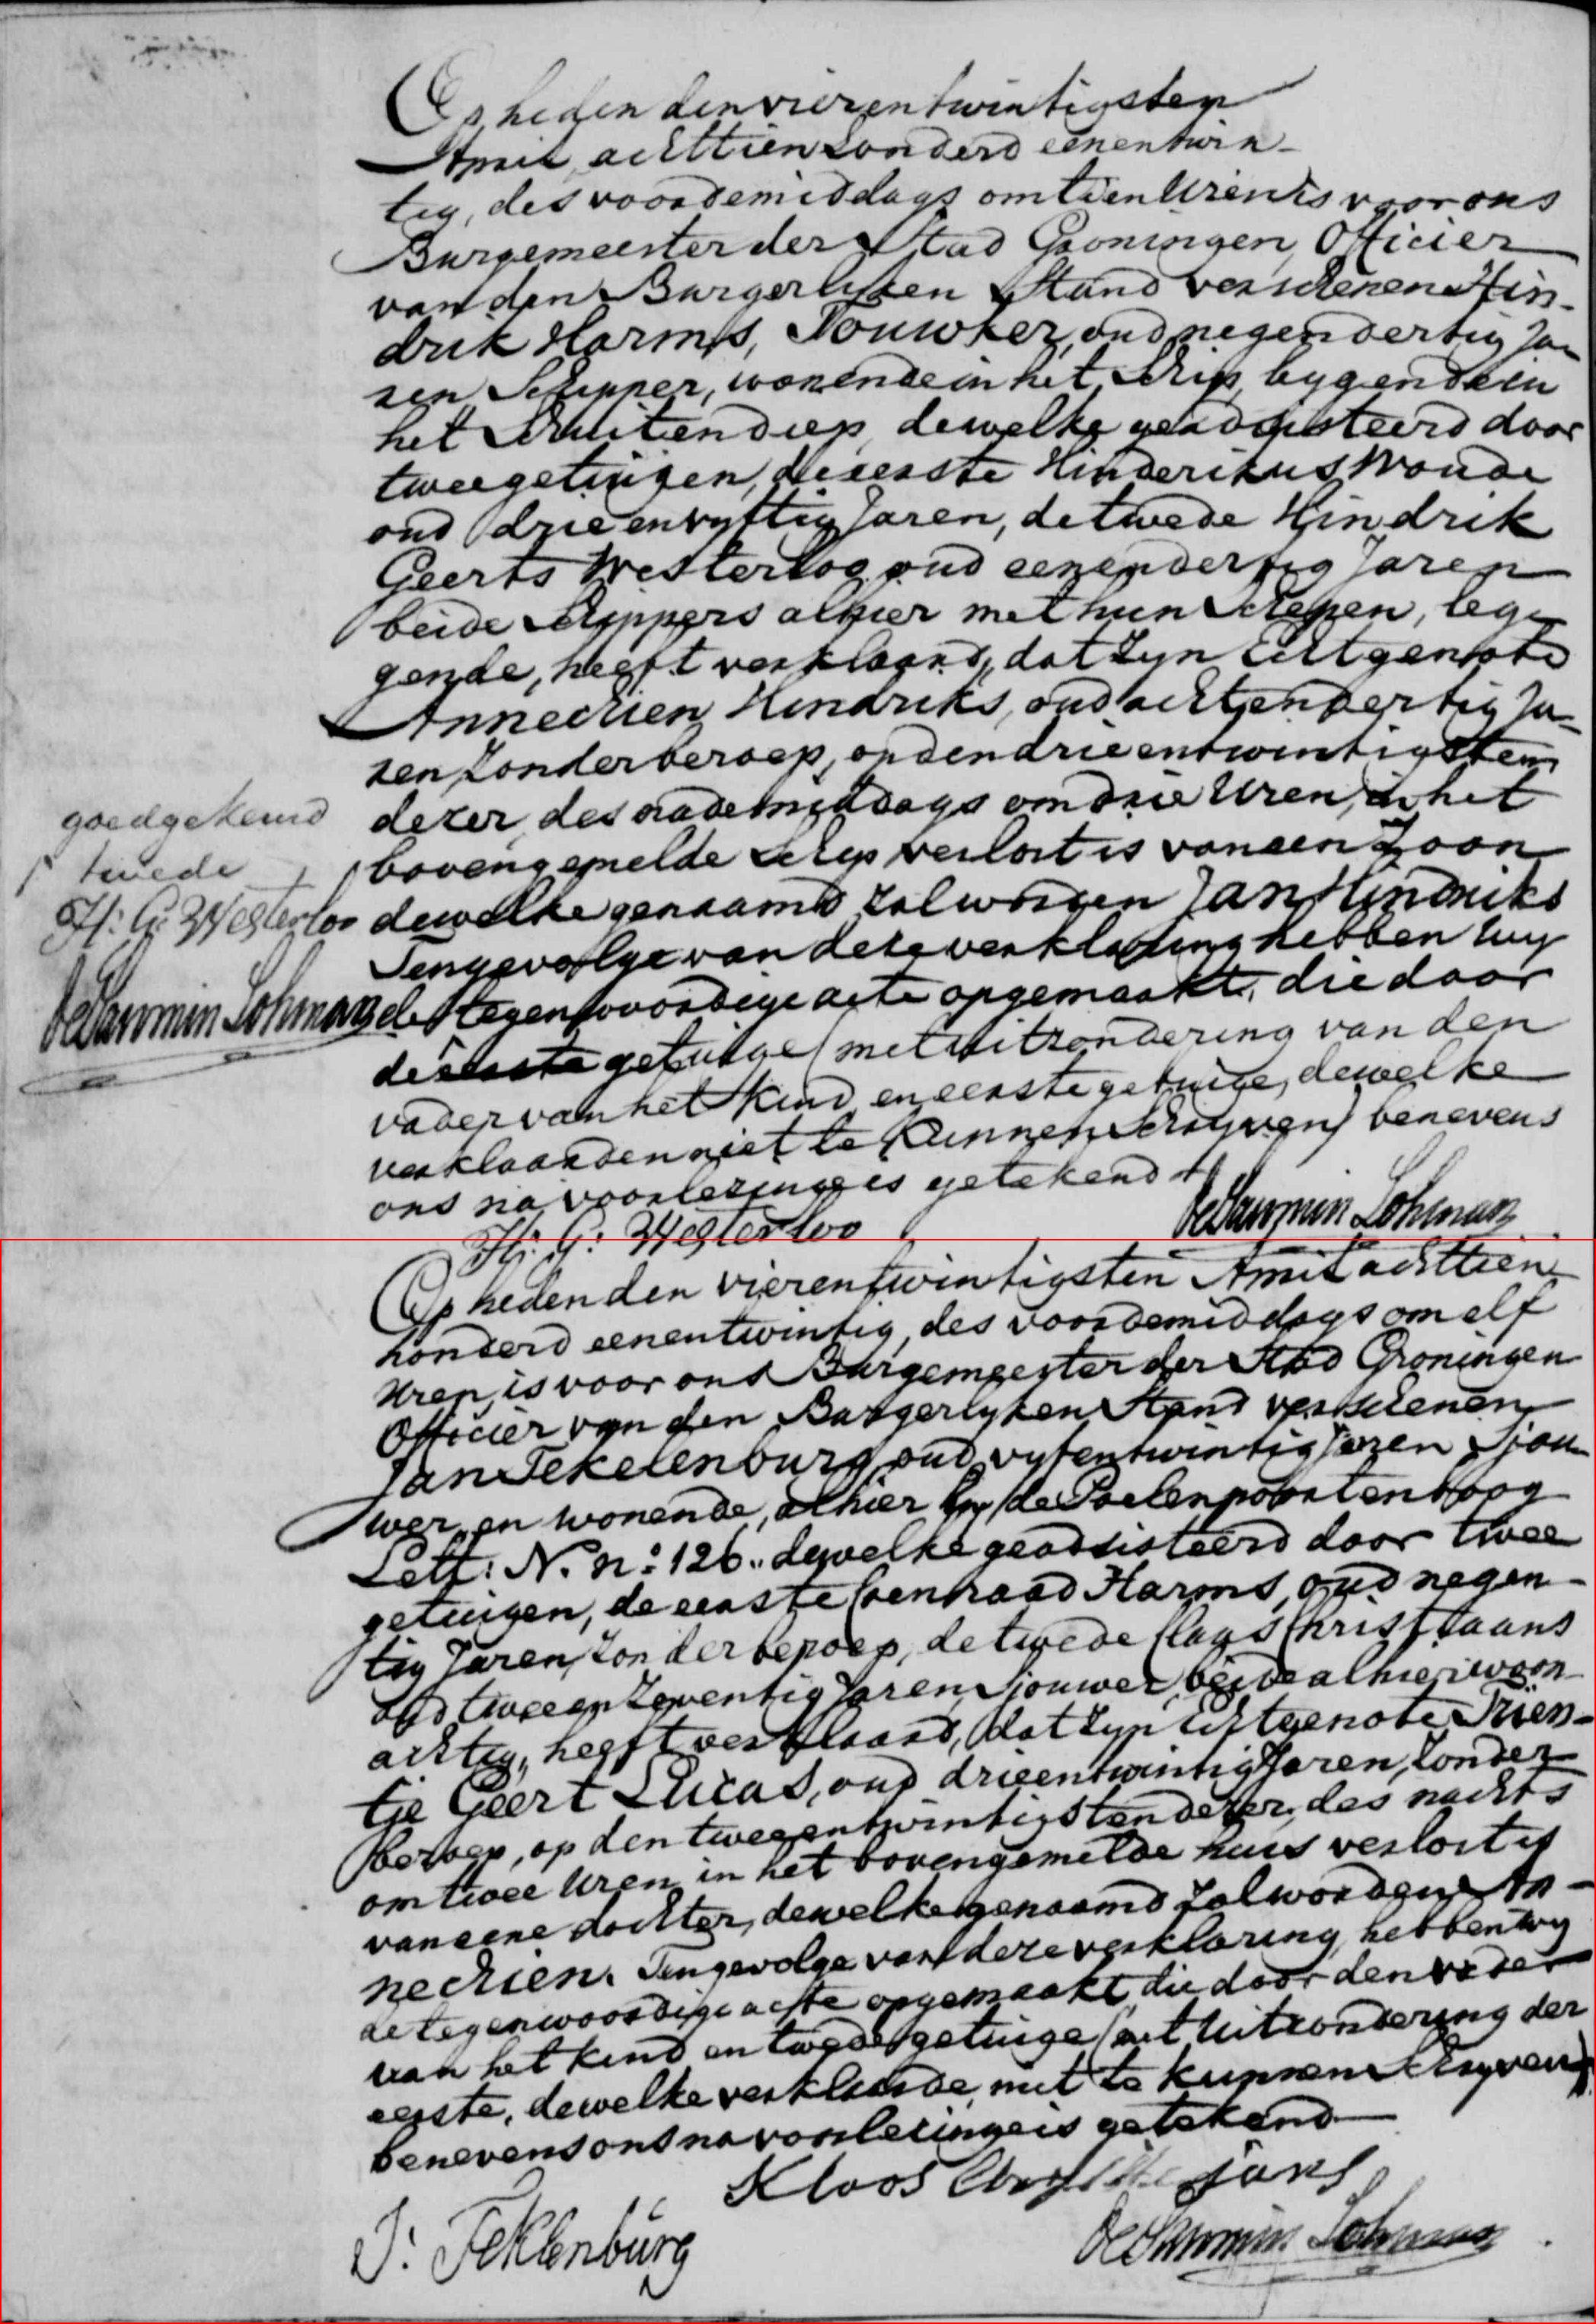 Op heden den vierentwintigsten
April, achttienhonderd eenentwin-
tig, des voordemiddags om tien Uren is voor ons
Burgemeester der Stad Groningen, Officier
van den Burgerlyken Stand verschenen Hin-
drik Harms, Touwker, oud negendertig Ja-
ren Schipper, wonende in het Schip, lygende in
het Schuitendiep, dewelke geadsisteerd door
twee getuigen, de eerste Hinderikus Wonde
oud drie en vyftig Jaren, de twede Hindrik
Geerts Westerloo oud eenendertig Jaren
beide Schippers alhier met hun Schepen, leg-
gende, heeft verklaard, dat zyn Echtgenote
Annechien Hindriks, oud achtendertig Ja-
ren, zonder beroep, op den drieentwintigsten
dezer, des nademiddags om drie Uren, in het
bovengemelde Schip verlost is van een Zoon
dewelke genaamd zal worden Jan Hindriks
Tengevolge van deze verklaring hebben wy
de tegenwoordige acte opgemaakt, die door
de eerste getuige (met uitzondering van den
vader van het kind en eerste getuige, dewelke
verklaarden niet te kunnen Schryven) benevens
ons na voorlezinge is getekend
goedgekeurd
twede
H: G: Westerloo
De Savornin Lohman
H: G: Westerloo
De Savornin Lohman
Op heden den vierentwintigsten April achttien
honderd eenentwintig, des voordemiddags om elf
Uren, is voor ons Burgemeester der Stad Groningen
Officier van den Burgerlyken Stand verschenen
Jan Tekelenburg, oud vyfentwintig Jaren Sjou-
wer en wonende, alhier by de Poelenpoortenboog
Lett: N. n: 126. dewelke geadsisteerd door twee
getuigen, de eerste Coenraad Harms, oud negen-
tig Jaren, zonder beroep, de twede Claas Christiaans
oud twee en zeventig Jaren, Sjouwer, beide alhier woon-
achtig, heeft verklaard, dat zyn Echtgenote Trien-
tje Geert Lucas, oud drieentwintig Jaren, zonder
beroep, op den tweeentwintigsten dezer, des nachts
om twee Uren, in het bovengemelde huis verlost is
van eene dochter, dewelke genaamd zal worden An-
nechien. Tengevolge van deze verklaring, hebben wy
de tegenwoordige acte opgemaakt, die door den vader
van het kind en twede getuige (met uitzondering der
eerste, dewelke verklaarde, niet te kunnen Schryven)
benevens ons na voorlezinge is getekend
Kloos
J: Teklenburg
De Savornin Lohman